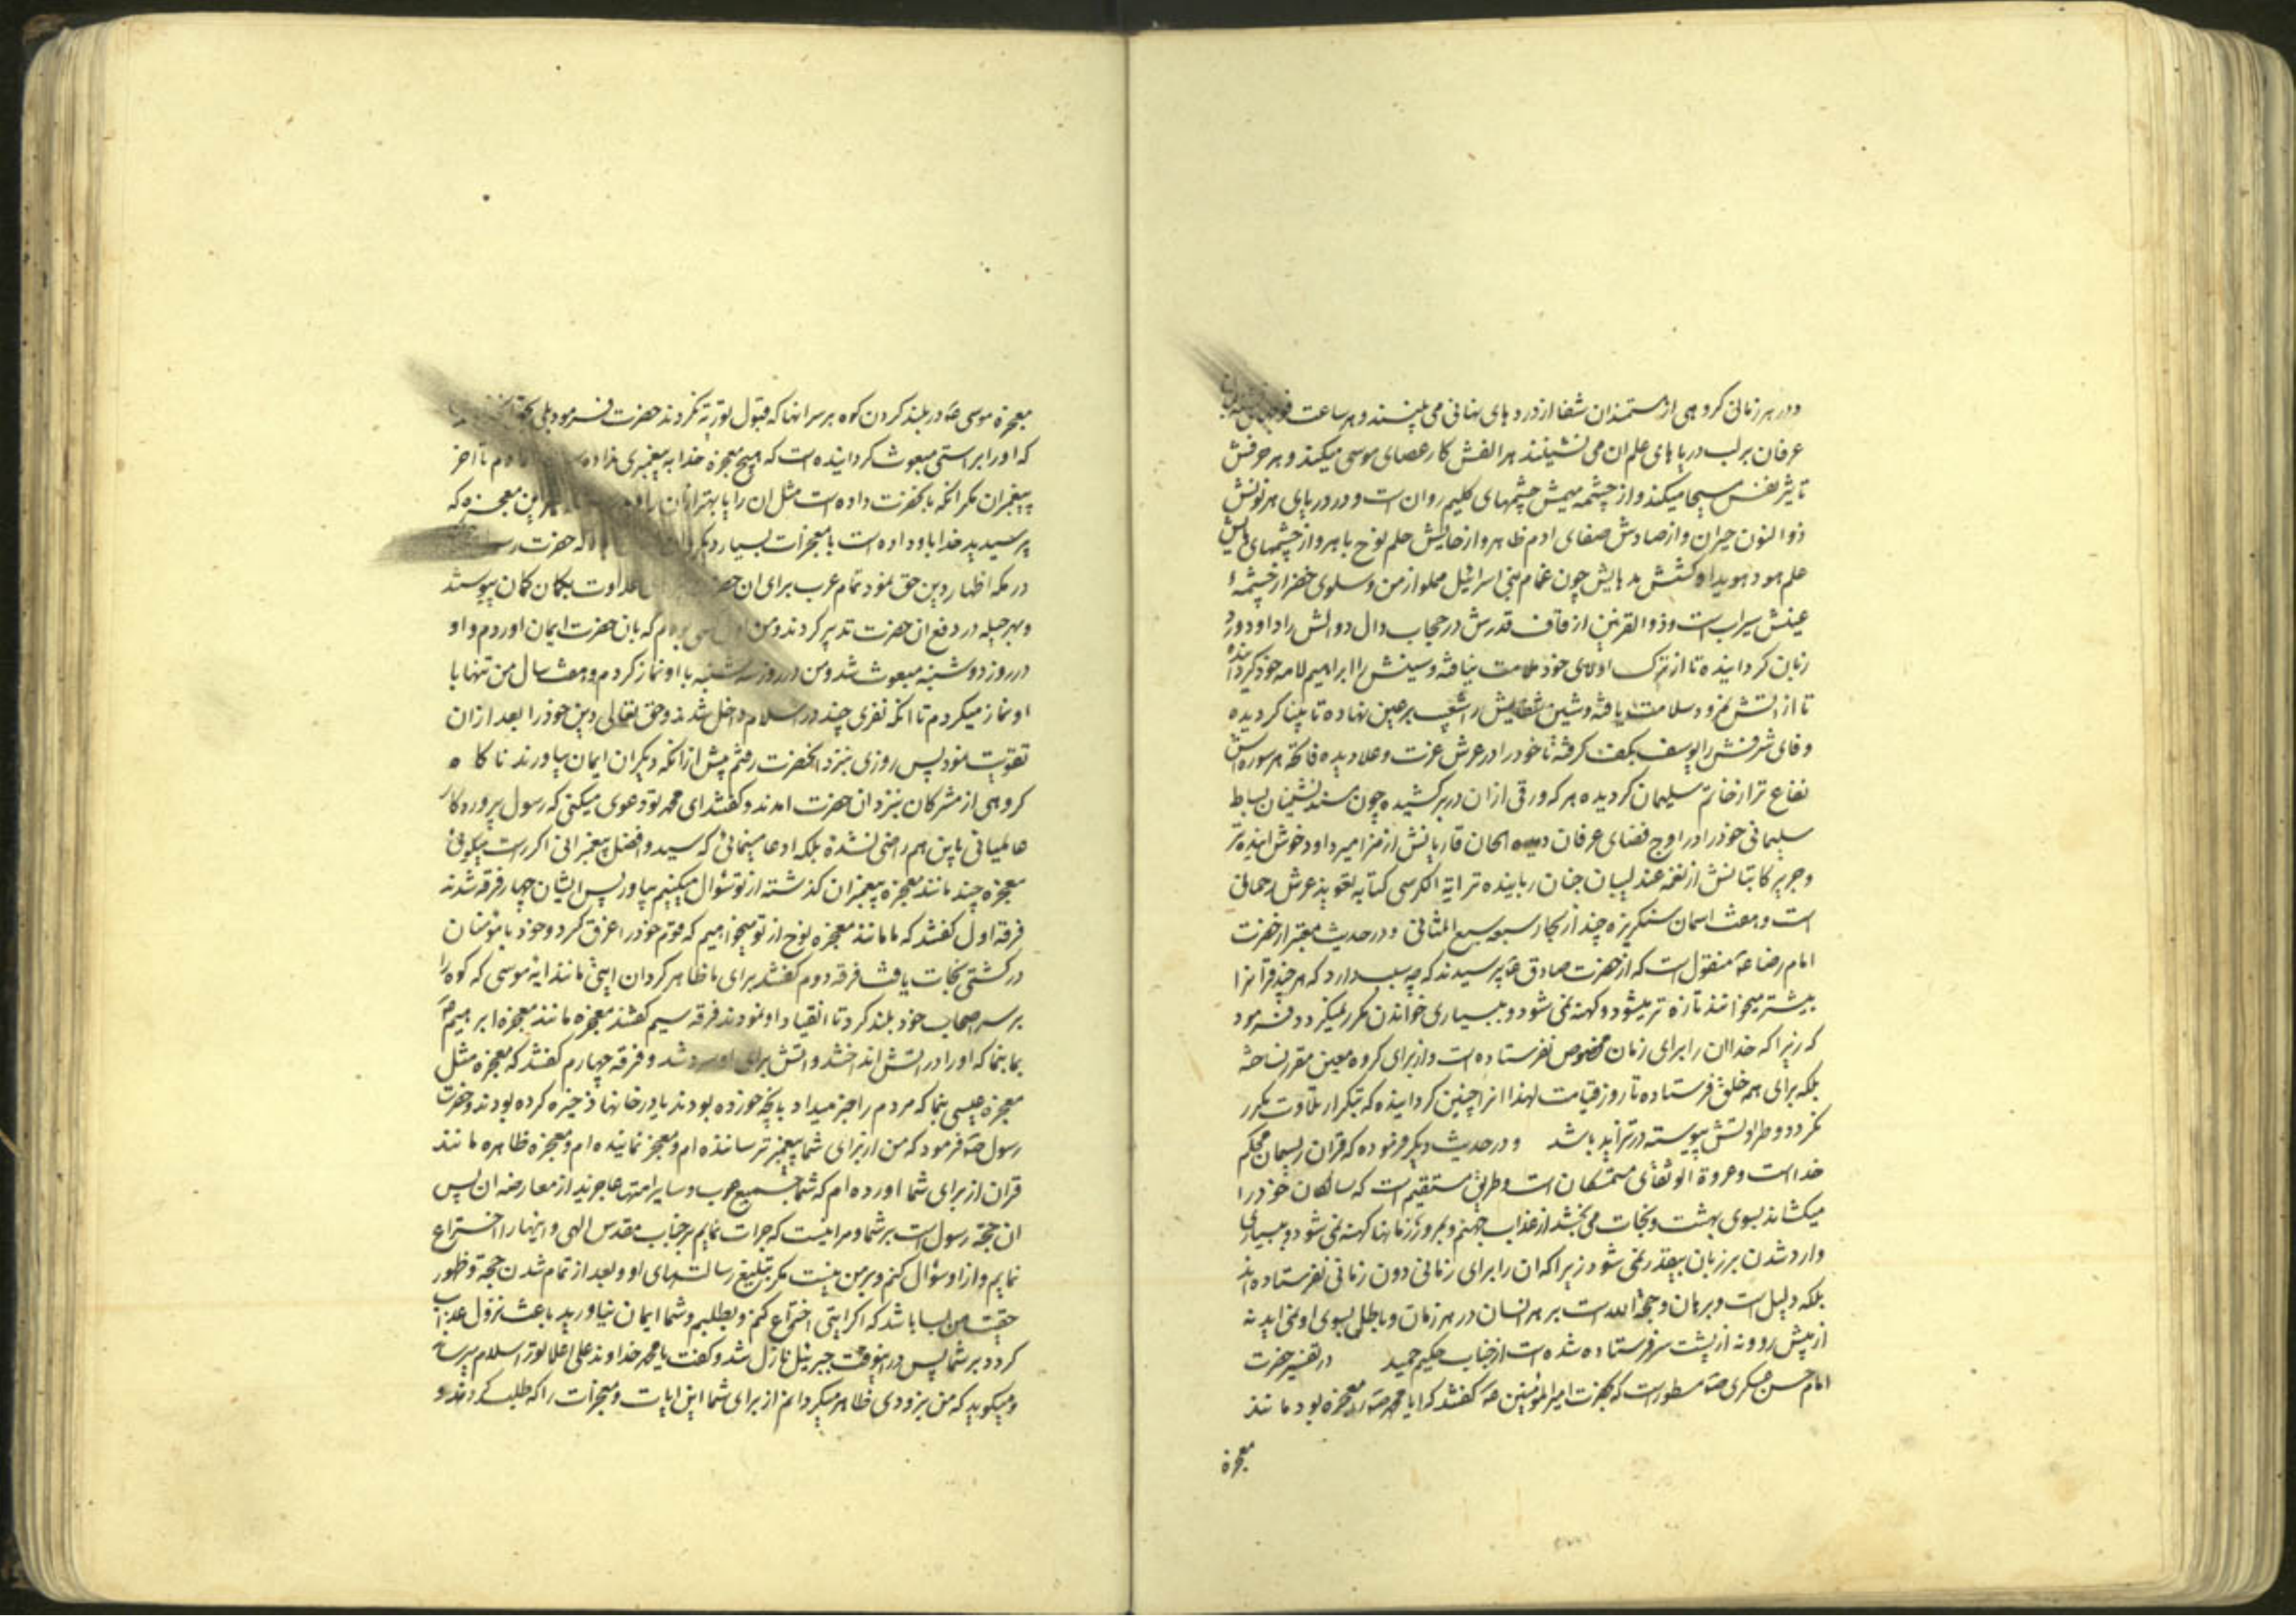 ودر هر زمانی کروهی از مستمندان شفا از دردهای نهانی می بینند و هر ساعت
عرفان بر لب دریاهای علم ان می نشینند هر الفش کار عصای موسی میکند و هر حرفش
تاثیر نفس مسیحا میکند و از چشمه میمش چشمهای کلیم روان است و در دریای هر نونش
ذوالنون حیران و از صادش صفای ادم ظاهر و از حایش حلم نوح باهر و از چشمهای هایش
علم هود هویدا و کشش مدهایش چون غمام بنی اسرائیل مملو از من و سلوی خضر از چشمهٔ
عینش سیراب است و ذوالقرنین از قاف قدرش در حجاب دال دوالش را داود ورد
زبان کردانیده تا از ترک اولای خود ملامت نیافته و سینش را ابراهیم لامه خود کردانیده
تا از اتش نمرود سلامت یافته و شین شفایش را شعیب بر عین نهاده تا بینا کردیده
و فای شرفش را یوسف بکف کرفته تا خود را در عرش عزت و علا دیده فاتحه هر سوره اش
نفاع تر از خاتم سلیمان کردیده هر که ورقی از ان در بر کشیده چون مسند نشینان بساط
سلیمانی خود را در اوج فضای عرفان دیده الحان قاریانش از مزامیر داود خوش اینده تر
و جریر کاتبانش از نغمه عندلیبان جنان رباینده تر ایة الکرسی کتابه تعویذ عرش رحمانی
است و هفت اسمان سنکریزه چند از بحار سبعه سبع المثانی و در حدیث معتبر از حضرت
امام رضا ع منقول است که از حضرت صادق ع پرسیدند که چه سبب دارد که هر چند قرانرا
بیشتر میخوانند تازه تر میشود و کهنه نمی شود و ببسیاری خواندن مکرر نمیکردد فرمود
که زیرا که خدا ان را برای زمان مخصوص نفرستاده است و از برای کروه معین مقرر نساخته
بلکه برای همه خلق فرستاده تا روز قیامت لهذا انرا چنین کردانیده که بتکرار تلاوت مکرر
نکردد و طراوتش پیوسته در تزاید باشد و در حدیث دیکر فرموده که قران ریسمان محکم
خداست و عروة الوثقای متمسکان است و طریق مستقیم است که سالکان خود را
میکشاند بسوی بهشت و نجات می بخشد از عذاب جهنم و بمرور زمانها کهنه نمی شود و ببسیاری
وارد شدن بر زبان بیقدر نمی شود زیرا که ان را برای زمانی دون زمانی نفرستاده اند
بلکه دلیل است و برهان و حجة الله است بر هر انسان در هر زمان و باطل بسوی او نمی اید نه
از پیش رو و نه از پشت سر فرستاده شده است از جناب حکیم حمید در تفسیر حضرت
امام حسن عسکری ص مسطور است که بحضرت امیر المؤمنین ص کفتند که ایا محمد ص را معجزه بود مانند
معجزه
معجزه موسی ص در بلند کردن کوه بر سر انها که قبول توریة نکردند حضرت فرمود بلی بحق
که او را براستی مبعوث کردانیده است که هیچ معجزه خدا به پیغمبری نداده تا اخر
پیغمبران مکر انکه بانحضرت داده است مثل ان را یا بهتر از ان را معجزه که
پرسیدید خدا باو داده است با معجزات بسیار دیکر که حضرت
در مکه اظهار دین حق نمود تمام عرب برای ان حضرت عداوت بکمان کمان پیوستند
و بهر حیله در دفع ان حضرت تدبیر کردند و من اول کسی بودم که بان حضرت ایمان اوردم و او
در روز دوشنبه مبعوث شد و من در روز سه شنبه با او نماز کردم و هفت سال من تنها با
او نماز میکردم تا انکه نفری چند در اسلام داخل شدند و حق تعالی دین خود را بعد از ان
تقویت نمود پس روزی بنزد انحضرت رفتم پیش از انکه دیکران ایمان بیاورند ناکاه
کروهی از مشرکان بنزد ان حضرت امدند و کفتند ای محمد تو دعوی میکنی که رسول پروردکار
عالمیانی باین هم راضی نشده بلکه ادعا مینمائی که سید و افضل پیغمبرانی اکر راست میکوئی
معجزه چند مانند معجزه پیغمبران کذشته از تو سؤال میکنیم بیاور پس ایشان چهار فرقه شدند
فرقه اول کفتند که ما مانند معجزه نوح از تو میخواهیم که قوم خود را غرق کرد و خود با مؤمنان
در کشتی نجات یافت فرقه دوم کفتند برای ما ظاهر کردان ایتی مانند ایة موسی که کوه را
بر سر اصحاب خود بلند کرد تا انقیاد او نمودند فرقه سیم کفتند معجزه مانند معجزه ابراهیم ص
بما بنما که او را در اتش انداختند و اتش برای او سرد شد و فرقه چهارم کفتند که معجزه مثل
معجزه عیسی بنما که مردم را خبر میداد بانچه خورده بودند یا در خانها ذخیره کرده بودند و حضرت
رسول ص فرمود که من از برای شما پیغمبر ترساننده ام و معجز نماینده ام و معجزه ظاهره مانند
قران از برای شما اورده ام که شما جمیع عرب و سایر امتها عاجزید از معارضه ان پس
ان حجة رسول است بر شما و مرا نیست که جرات نمایم بر جناب مقدس الهی و اینها را اختراع
نمایم و از او سؤال کنم و بر من نیست مکر تبلیغ رسالتهای او و بعد از تمام شدن حجة و ظهور
حقیت من بسا باشد که اکر ایتی اختراع کنم و بطلبم و شما ایمان نیاورید باعث نزول عذاب
کردد بر شما پس در اینوقت جبرئیل نازل شد و کفت یا محمد خداوند علی اعلا تو را سلام میرساند
و میکوید که من بزودی ظاهر میکردانم از برای شما این ایات و معجزات را که طلب کردند و